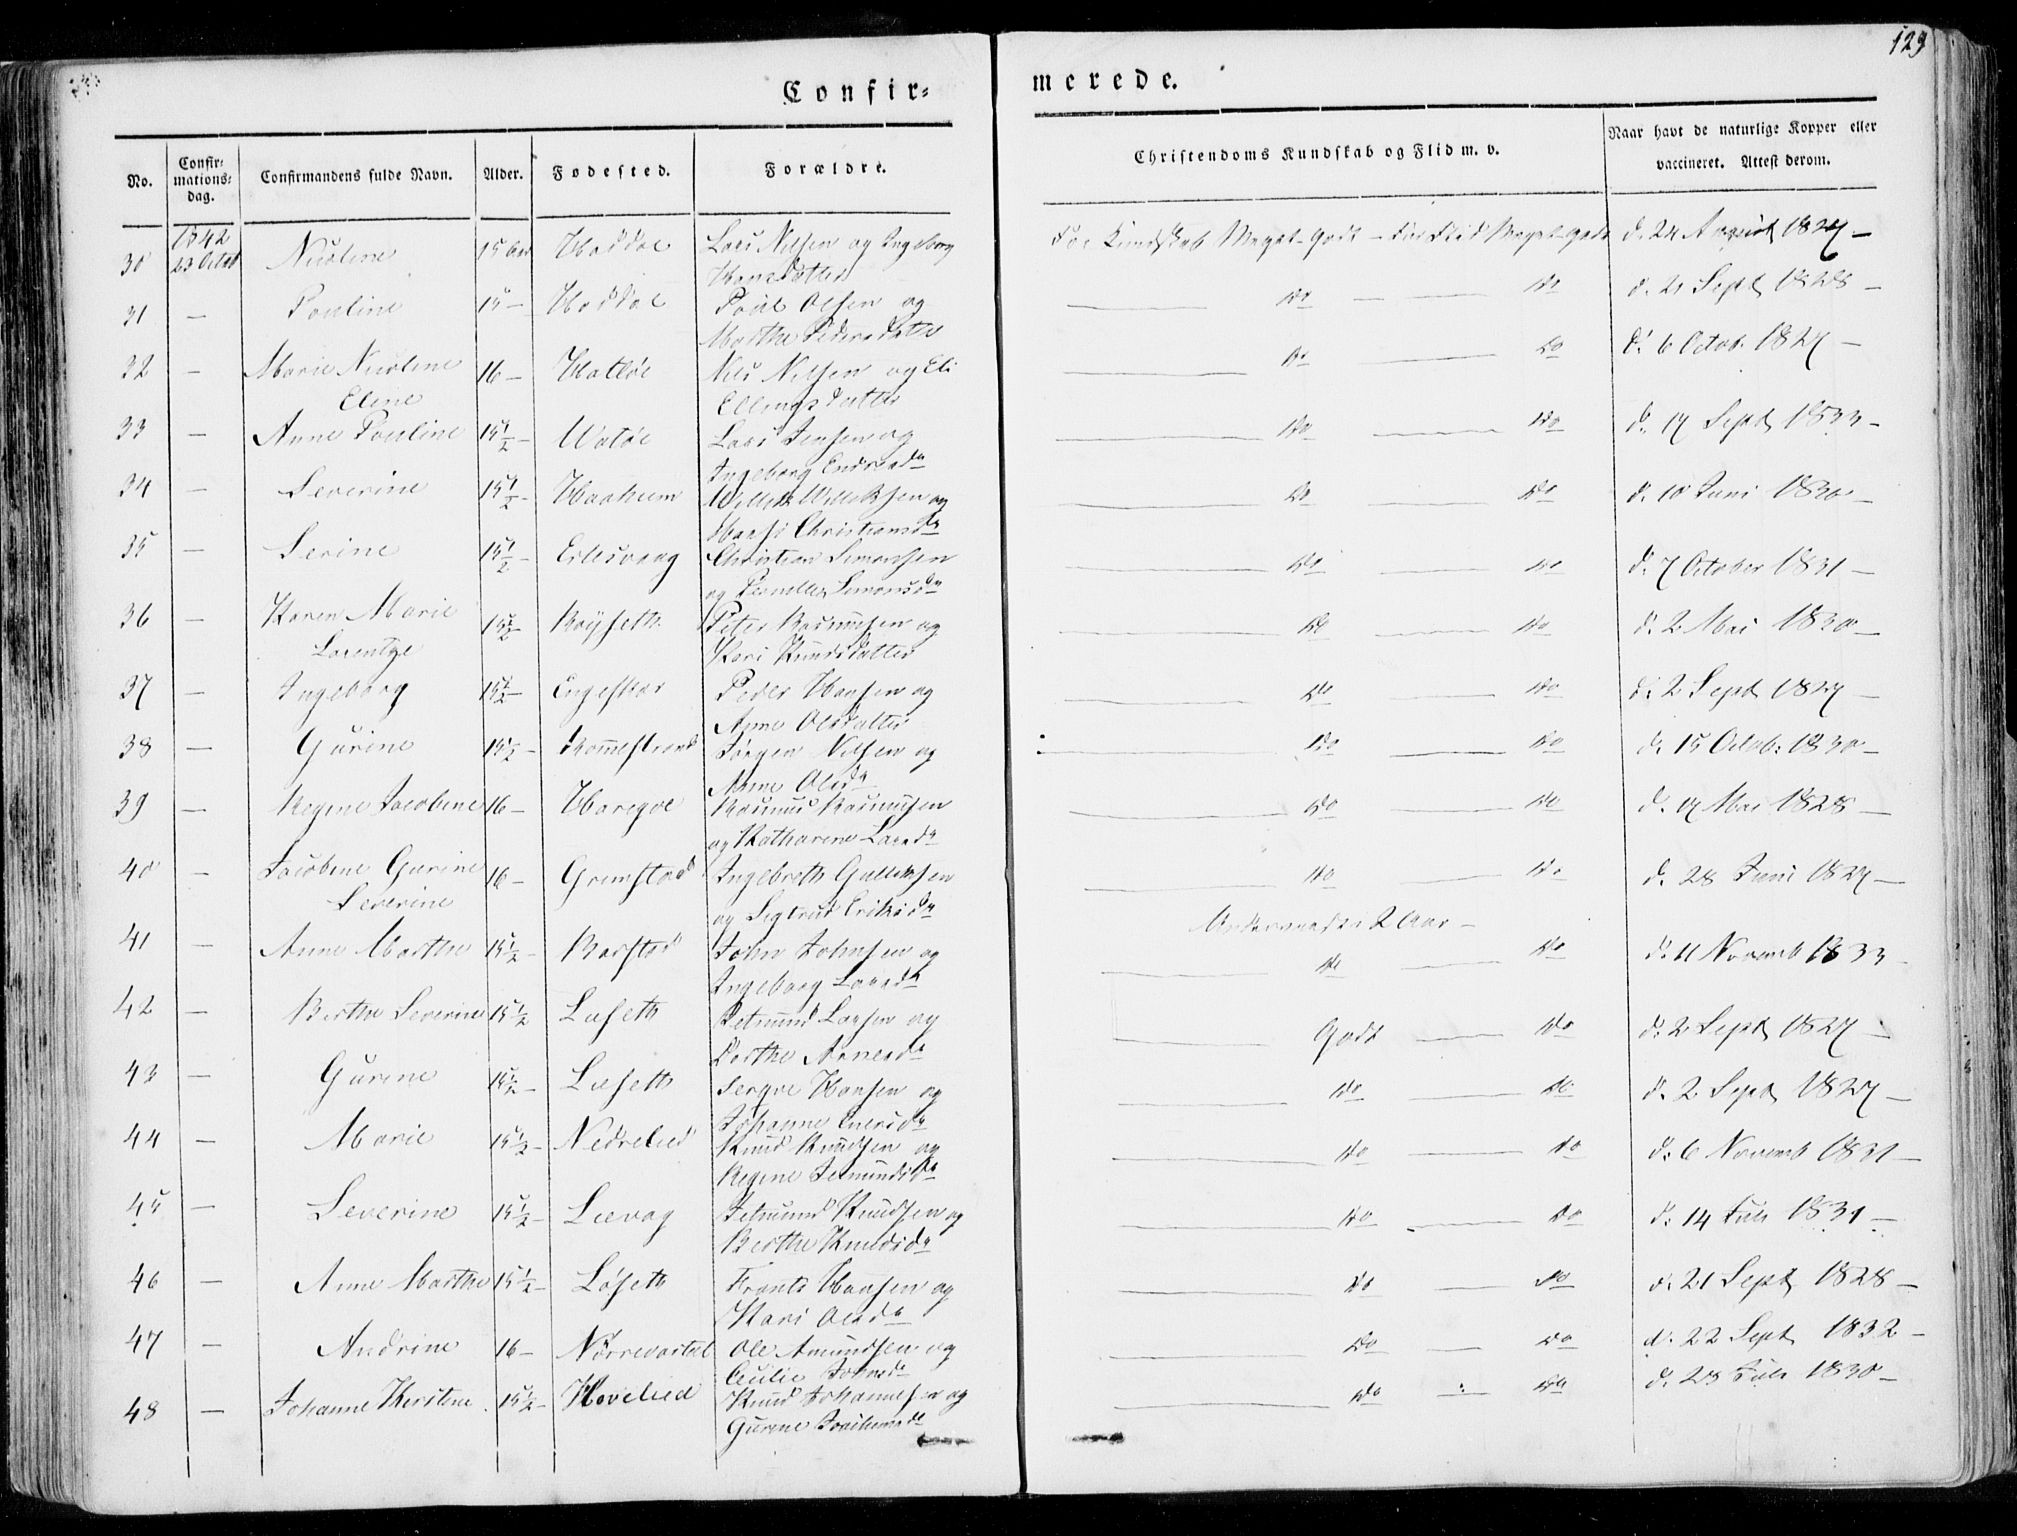 129
Confir= merede.
No. Confir= mations= dag. Confirmandens fulde Navn. Alder. Fodested. Forældre. Christendoms Kundskab og Flid m. v. Naar havt de naturlige Kopper eller vaccineret. Attest derom.
30 1842 23 Octob Nicoline 15 Aar Haddal Lars Nilsen og Ingeborg Hansdatter For Kundskab Meget-godt – For Flid Meget-godt d. 24 August 1827 –
31 – Pouline 15 – Haddal Poul Olsen og Marthe Pedersdatter do – do d. 21 Sept 1828 –
32 – Marie Nicoline Eline 16 – Hatløe Nils Nilsen og Eli Ellingsdatter do do d. 6 Octob. 1827 –
33 – Anne Pouline 15 1/2 – Watøe Lars Jensen og Ingeborg do do d. 17 Sept 1833 –
34 – Severine 15 1/2 – Haaheim og Christiansdr do do d. 10 Juni 1830 –
35 – Serine 15 1/2 – Eilesvaag Christian Simonsen og Pernille Simonsdr do do d. 7 October 1831 –
36 – Karen Marie Lorentze 15 1/2 – Røyseth Peter Rasmusen og Kari Knudsdatter do do d. 2 Mai 1830 –
37 – Ingeborg 15 1/2 – Engeskar Peder Hansen og Anne Olsdatter do do d. 2 Sept 1827 –
38 – Gurine 15 1/2 – Jørgen Nilsen og Anne Olsdr do do d. 15 Octob: 1830 –
39 – Regine Jacobine 16 – Haregoe Rasmus Rasmusen og Katharine Larsdr do do d. 17 Mai 1828 –
40 – Jacobine Gurine Severine 16 – Grimstad Ingebreth Gulliksen og Sigtrud Eriksdr do do d. 28 Juni 1827 –
Underviist i 2 Aar –
41 – Anne Marthe 15 1/2 – Barstad John Johnsen og Ingeborg Larsdr do do d. 11 Novemb 1833 –
42 – Berthe Severine 15 1/2 Liaseth Larsen og Dorthe Arnesdr Godt do d. 2 Sept 1827 –
43 – Gurine 15 1/2 – Liaseth Hansen og Johanne do do d. 2 Sept 1827 –
44 – Marie 15 1/2 – Nedrelied Knud Knudsen og Regine do do d: 6 Novemb 1831 –
45 – Severine 15 1/2 – Lievag Knudsen og Berthe Knudsdr do do d: 14 Juli 1831 –
46 – Anne Marthe 15 1/2 – Løseth Frants Hansen og Kari Olsdr do do d. 21 Sept 1828 –
47 – Andrine 16 – Nørrevartdal Ole Amundsen og Cecilie Johnsdr do do d. 22 Sept 1832 –
48 – Johanne Kirstine 15 1/2 – Hovelied Knud Johannesen og Gurine do do d. 28 Juli 1830 –